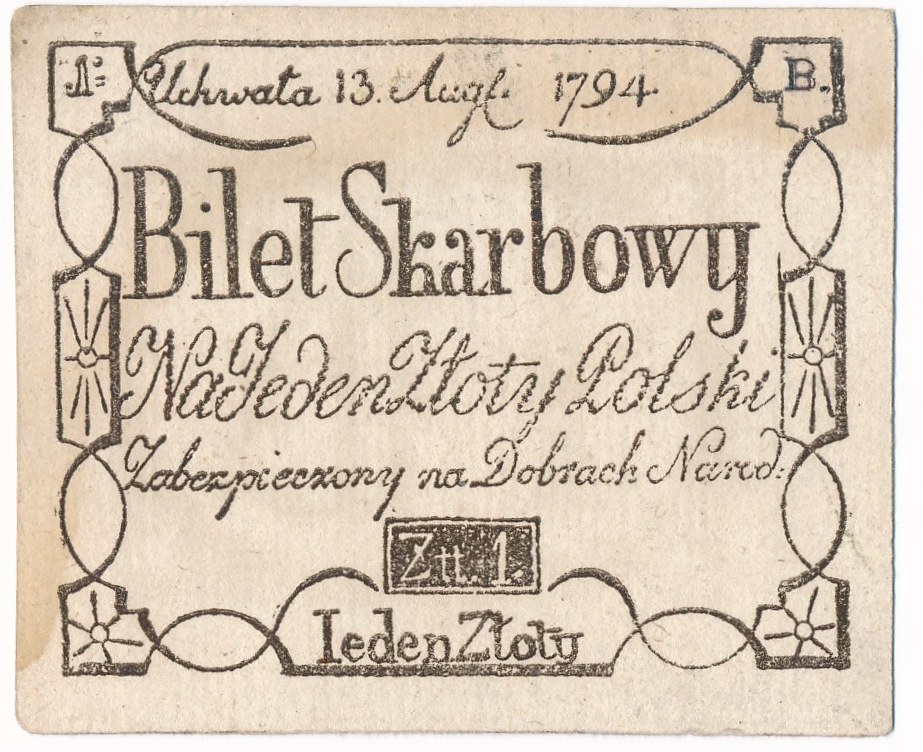 1: Uchwała 13. Augt. 1794. B.
Bilet Skarbowy
Na Jeden Złoty Polski
Zabezpieczony na Dobrach Narod:
Złł. 1.
Ieden Złoty